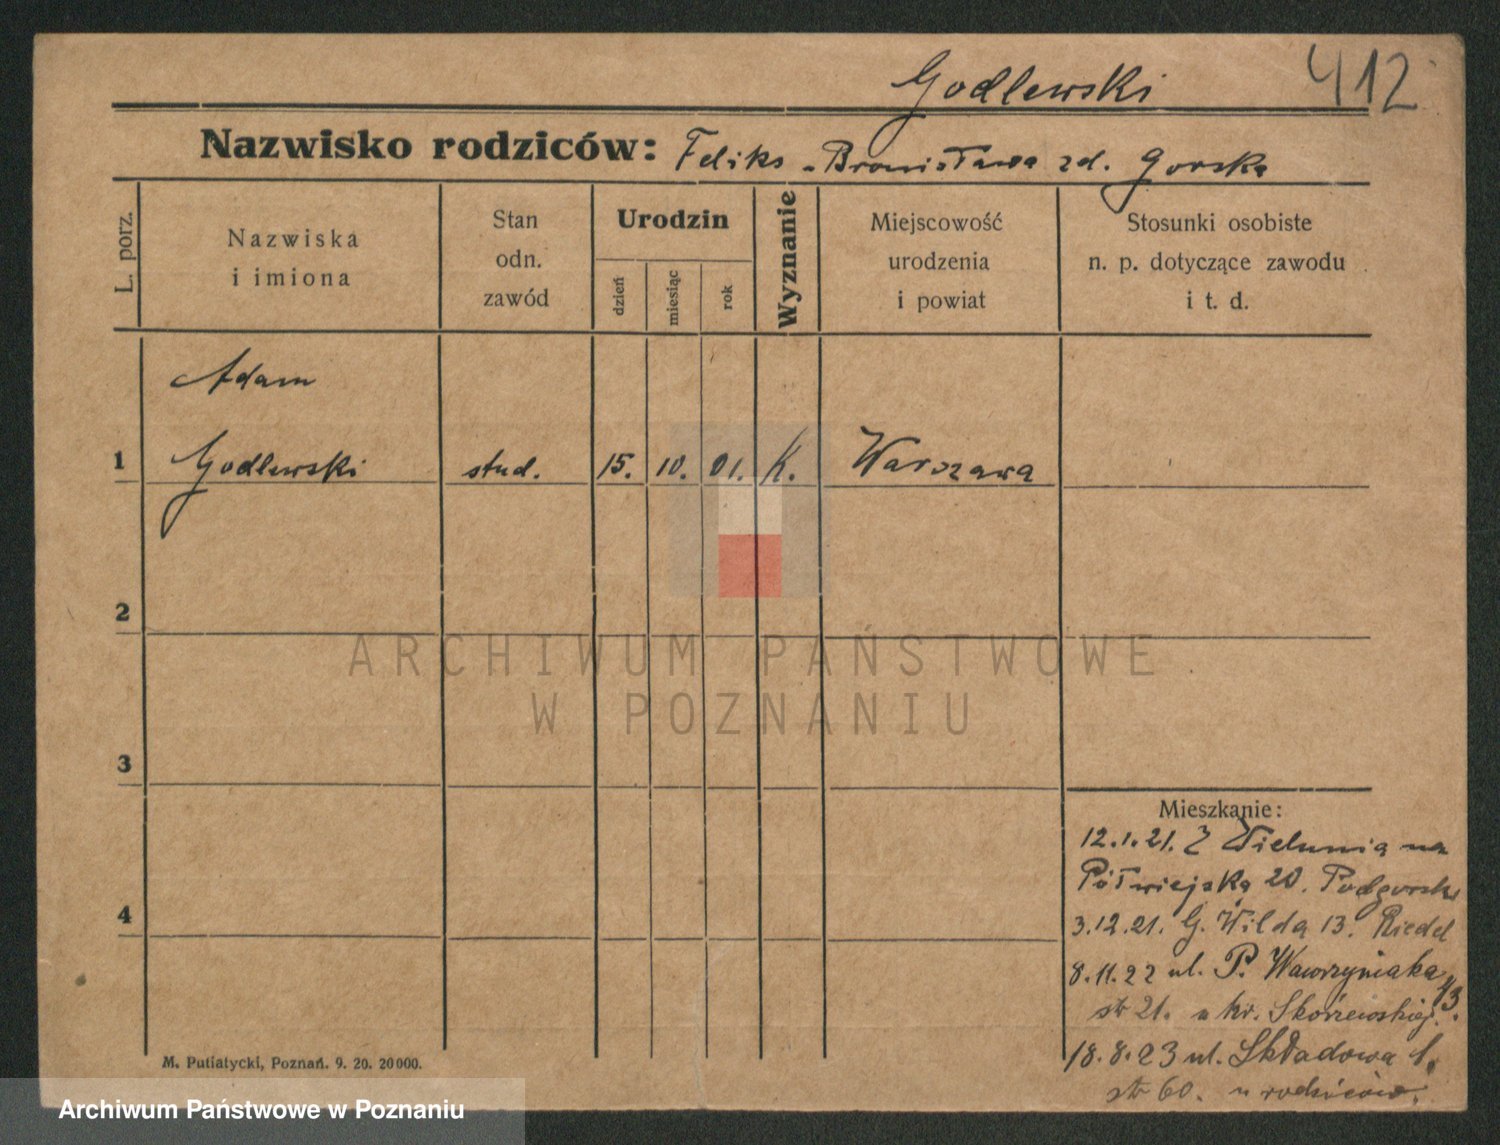 Godlewski 412
Nazwisko rodziców: Feliks - Bronisława zd. Gorska
L. porz.
Nazwiska
i imiona
Stan
odn.
zawód
Urodzin
dzień
miesiąc
rok
Wyznanie
Miejscowość
urodzenia
i powiat
Stosunki osobiste
n. p. dotyczące zawodu
i t. d.
Adam
1 Godlewski stud. 15. 10. 01. K. Warszawa
2
3
4
Mieszkanie:
12.1.21. Z Wielunia na
Półwiejska 20. Podgorski
3.12.21. G. Wilda 13. Riedel
8.11.22 ul. P. Wawrzyniaka 43.
str 21. u kr. Skórzewskiej.
18.8.23 ul. Składowa
str 60. u rodziców.
M. Putiatycki, Poznań. 9. 20. 20000.
ARCHIWUM PAŃSTWOWE
W POZNANIU
Archiwum Państwowe w Poznaniu